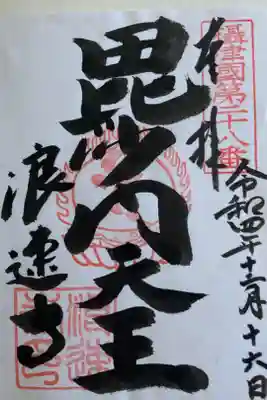 攝津國第二十八番
奉拝
令和四年十二月十六日
毘沙門天王
浪速寺